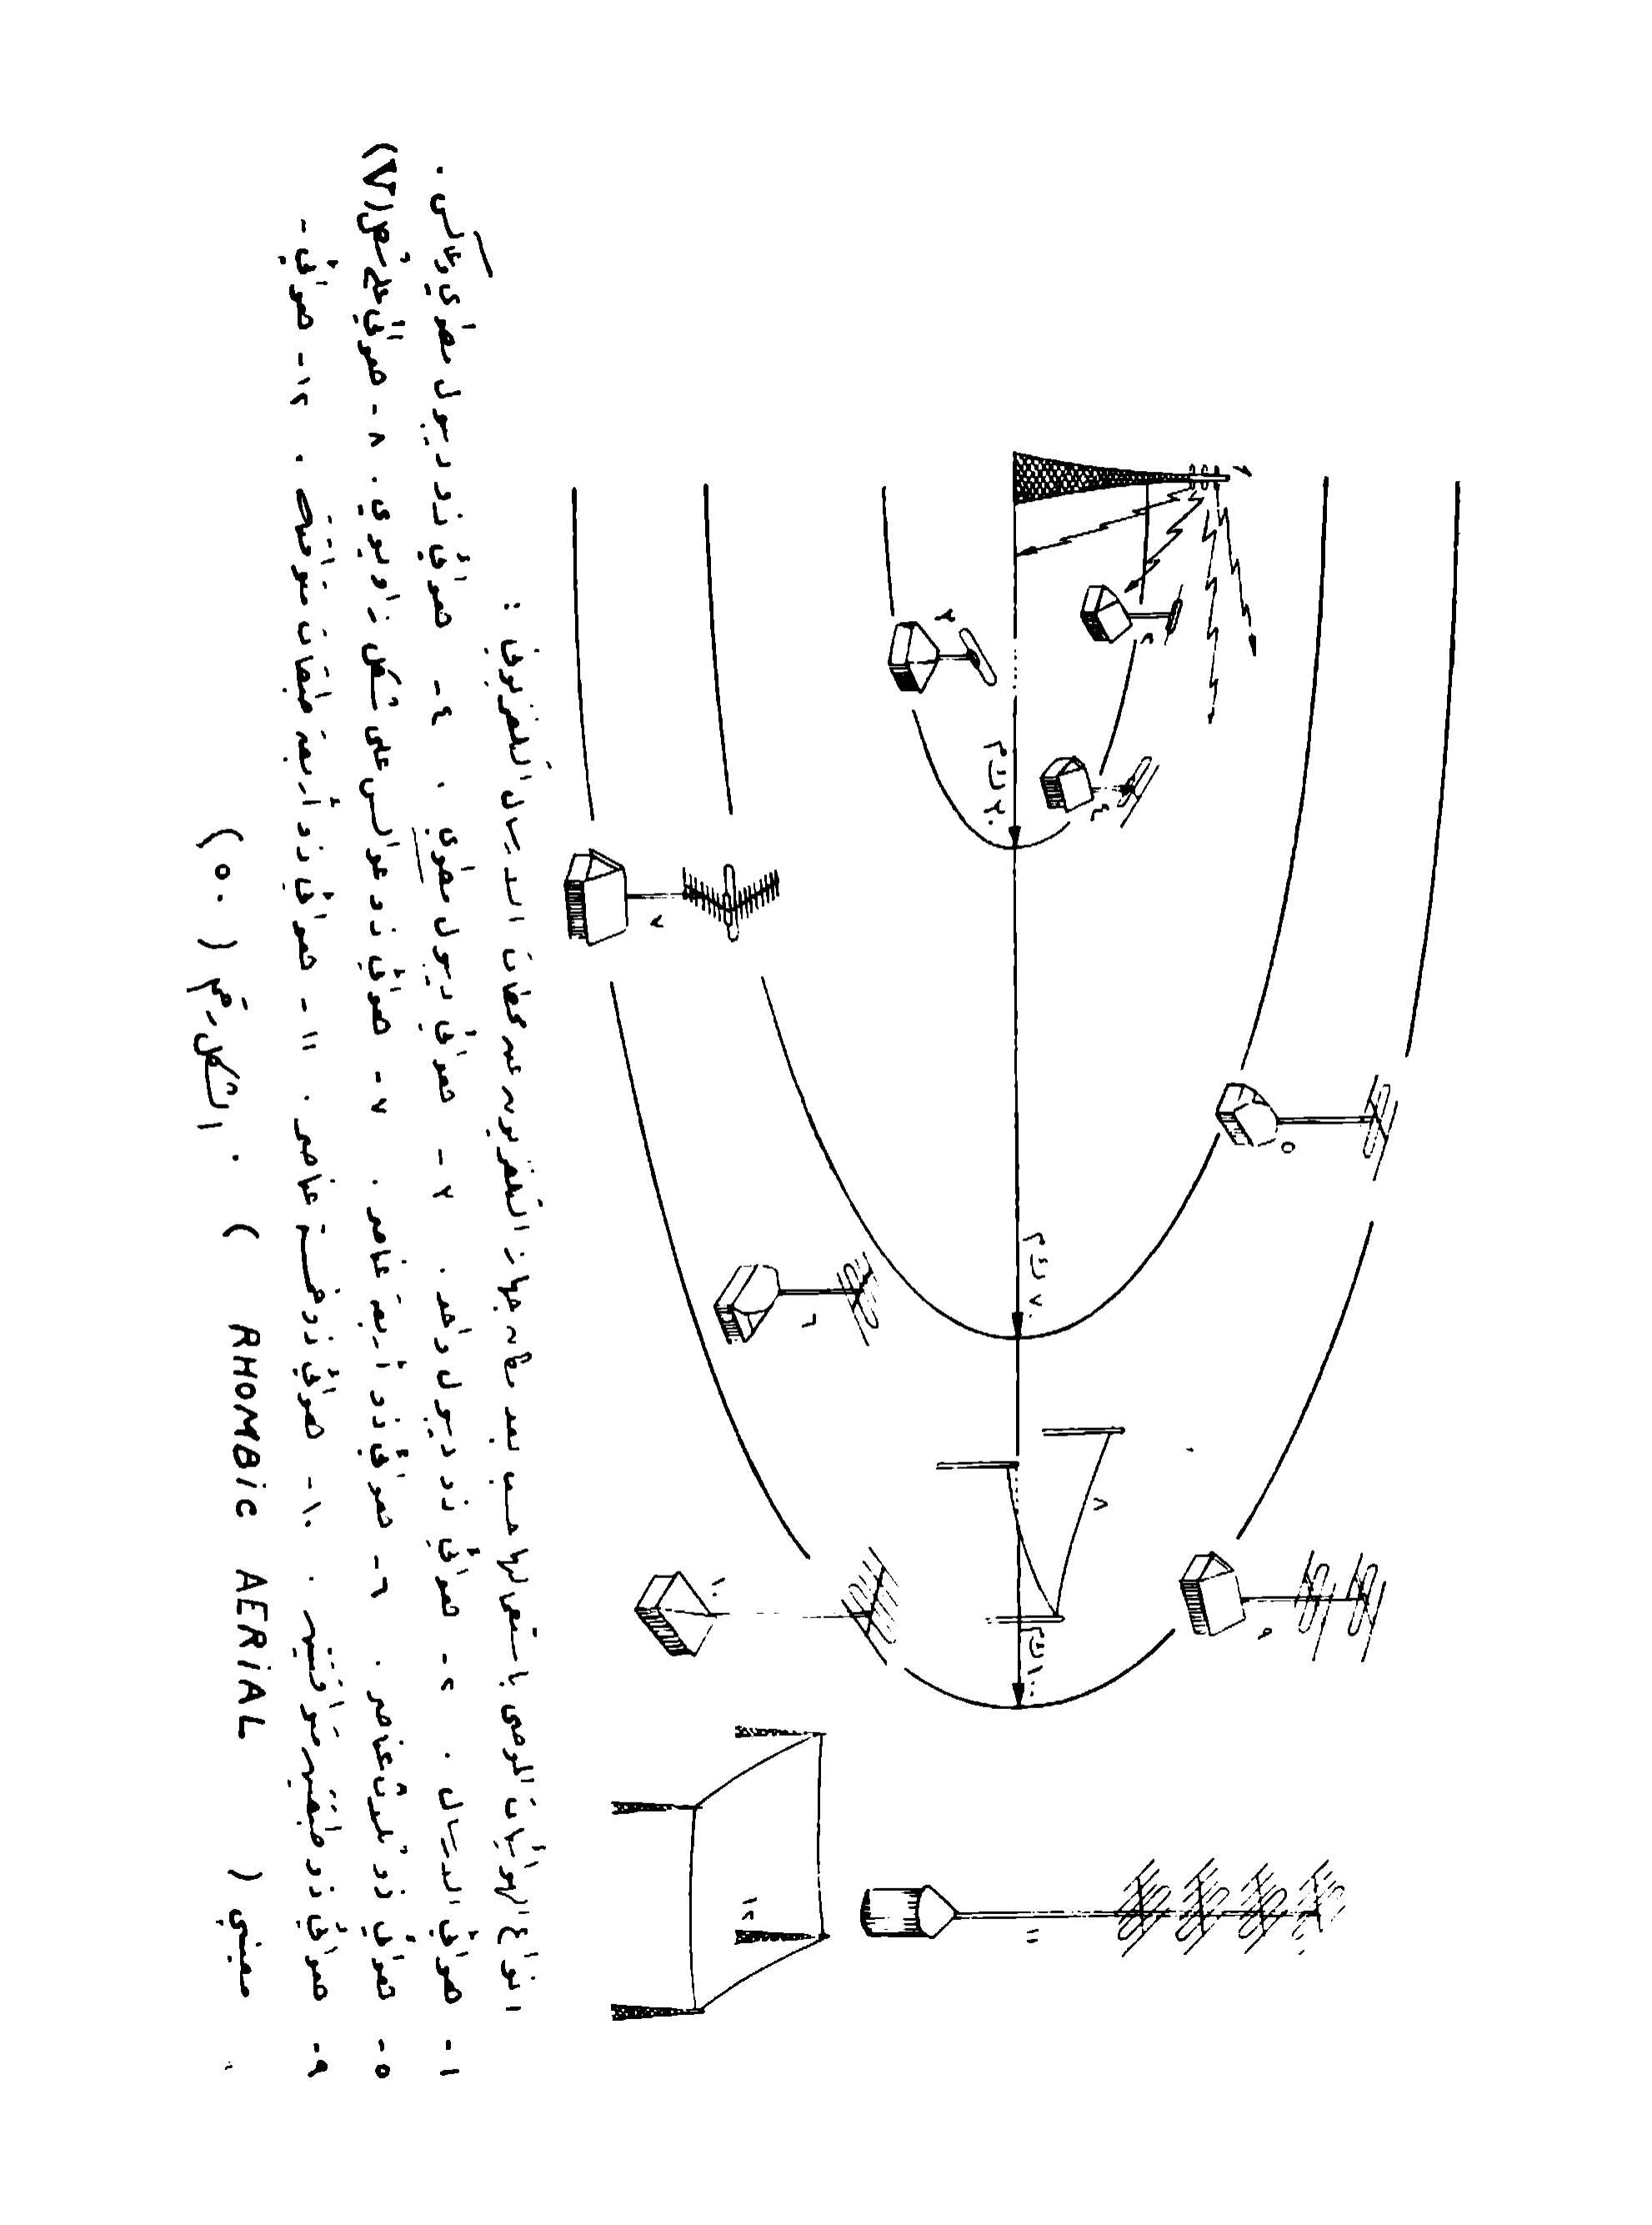 ١
٢
٣
٤
٢٠ كم
٥
٧
٧٠ كم
٦
٨
٩
١٠
١٠٠ كم
١١
١٢
انواع الهوائيات الموصى باستعمالها حسب بعد مكان جهاز التلفزيون عن محطات الارسال التلفزيوني :
١- هوائي الارسال . ٢- هوائي ذو ديبول واحد . ٣- هوائي ديبول مطوي . ٤- هوائي ذو ديبول مطوي وعاكس .
٥- هوائي ذو ثلاث عناصر . ٦- هوائي ذو أربعة عناصر . ٧- هوائي ذو عواكس على شكل زاويوي . ٨- هوائي على شكل (V)
٩- هوائي ذو طبقتين متوافقتين . ١٠- هوائي ذو خمسة عناصر . ١١- هوائي ذو أربعة طبقات متوافقة . ١٢- هوائي -
معيني ( RHOMBiC AERiAL ) .
الشكل رقم ( ٥٠ )